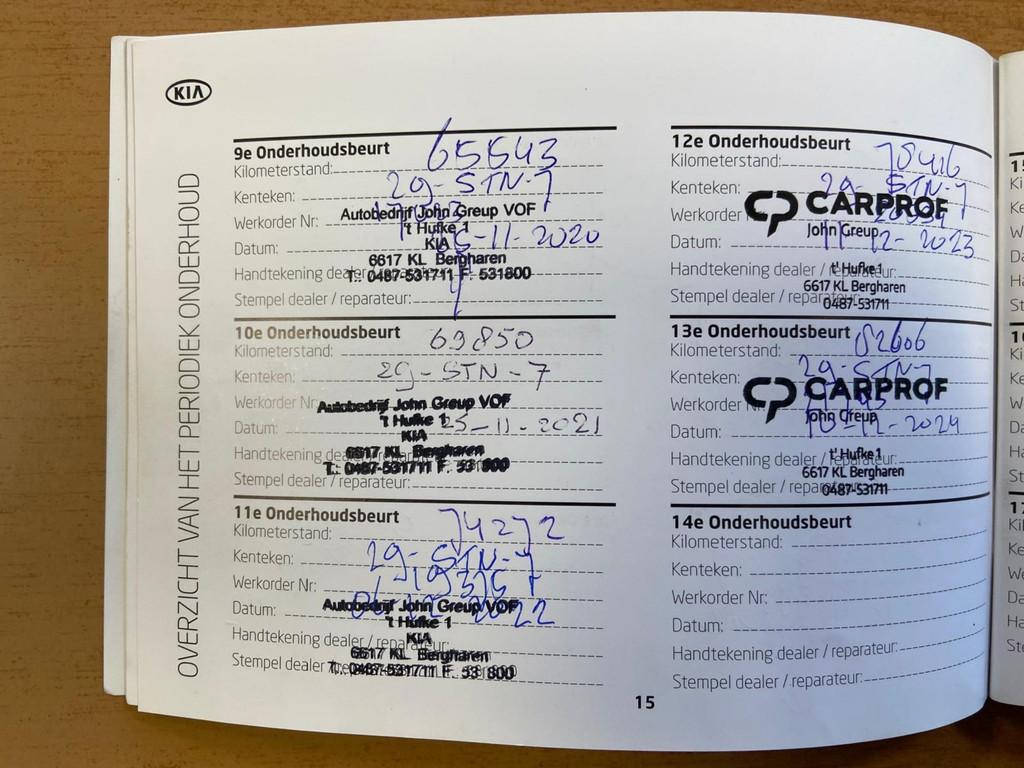 KIA
OVERZICHT VAN HET PERIODIEK ONDERHOUD
9e Onderhoudsbeurt
Kilometerstand: 65543
Kenteken: 29-STN-7
Werkorder Nr:
Autobedrijf John Greup VOF
't Hufke 1
Datum: 05-11-2020
KIA
6617 KL Bergharen
Handtekening dealer / reparateur:
T.: 0487-531711 F. 531800
Stempel dealer / reparateur:
10e Onderhoudsbeurt
Kilometerstand: 69850
Kenteken: 29-STN-7
Werkorder Nr:
Autobedrijf John Greup VOF
't Hufke 1
Datum: 25-11-2021
KIA
6617 KL Bergharen
Handtekening dealer / reparateur:
T.: 0487-531711 F. 531800
Stempel dealer / reparateur:
11e Onderhoudsbeurt
Kilometerstand: 74272
Kenteken: 29-STN-7
Werkorder Nr:
Datum: 06-12-2022
Autobedrijf John Greup VOF
't Hufke 1
KIA
Handtekening dealer / reparateur:
6617 KL Bergharen
Stempel dealer / reparateur:
T.: 0487-531711 F. 531800
12e Onderhoudsbeurt
Kilometerstand: 78416
Kenteken: 29-STN-7
Werkorder Nr:
CARPROF
John Greup
Datum: 11-12-2023
Handtekening dealer / reparateur:
't Hufke 1
6617 KL Bergharen
Stempel dealer / reparateur:
0487-531711
13e Onderhoudsbeurt
Kilometerstand: 82606
Kenteken: 29-STN-7
Werkorder Nr:
CARPROF
John Greup
Datum: 10-12-2024
Handtekening dealer / reparateur:
't Hufke 1
6617 KL Bergharen
Stempel dealer / reparateur:
0487-531711
14e Onderhoudsbeurt
Kilometerstand:
Kenteken:
Werkorder Nr:
Datum:
Handtekening dealer / reparateur:
Stempel dealer / reparateur:
15